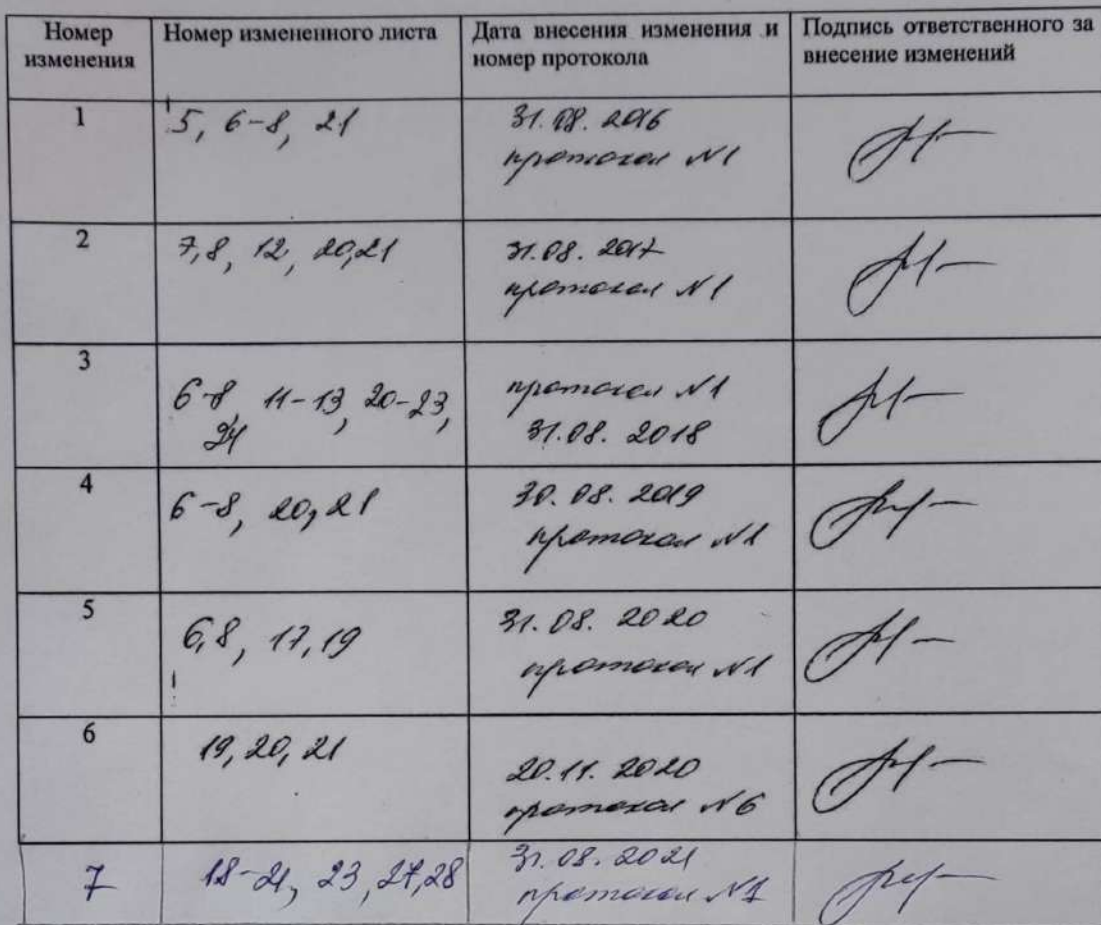 Номер изменения
Номер измененного листа
Дата внесения изменения и номер протокола
Подпись ответственного за внесение изменений
1
5, 6-8, 21
31.08.2016
протокол №1
2
7,8, 12, 20,21
31.08.2017
протокол №1
3
6-8, 11-13, 20-23,
24
протокол №1
31.08.2018
4
6-8, 20,21
30.08.2019
протокол №1
5
6,8, 17,19
31.08.2020
протокол №1
6
19, 20, 21
20.11.2020
протокол №6
7
18-21, 23, 27,28
31.08.2021
протокол №1